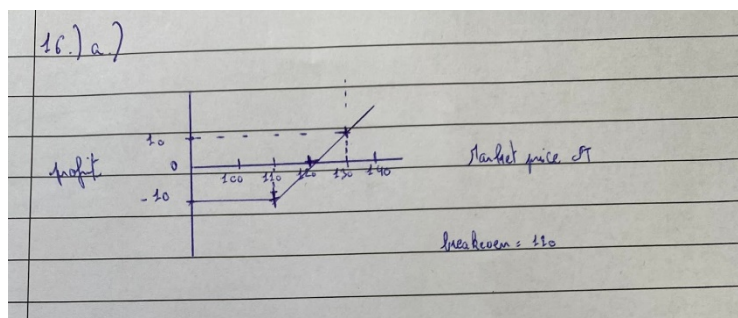 16.) a.)
10
profit 0 100 110 120 130 140 Market price ST
-10
breakeven =